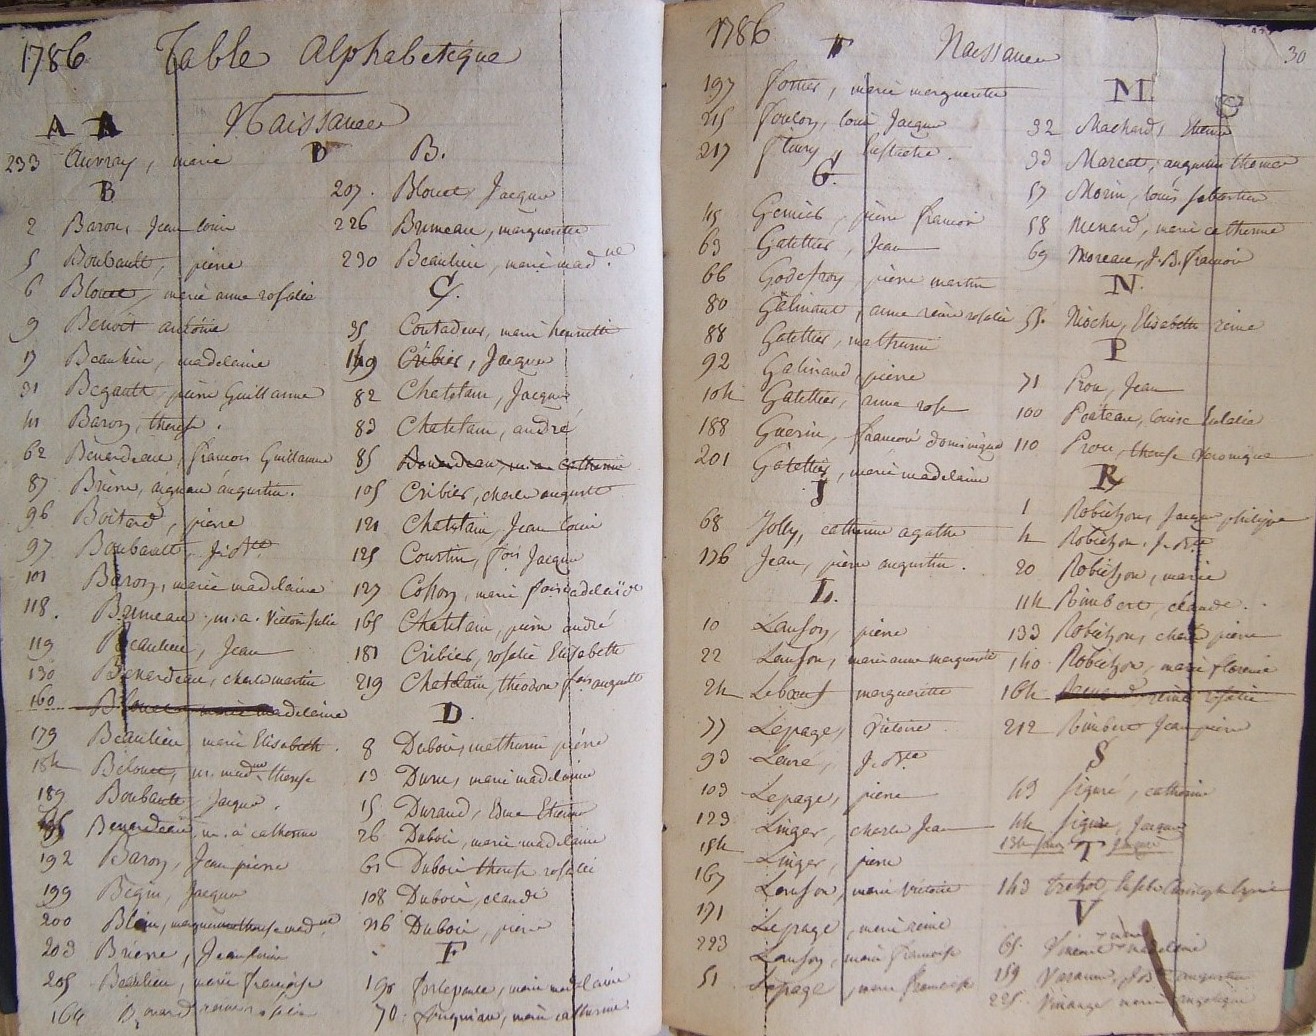 1786 Table Alphabetique
Naissances
A A
233 Auvray, marie
B
2 Baron, Jean louis
5 Boubault, pierre
6 Blouet, marie anne rosalie
9 Benoit antoine
17 Beaulieu, madelaine
31 Begault, pierre Guillaume
41 Baron, therese.
62 Benardeau, francois Guillaume
87 Briere, aignan augustin.
96 Boitard, pierre
97 Boubault, J. Bte
101 Baron, marie madelaine
118. Bruneau, m. a. Victoire julie
119 Beaulieu, Jean
130 Benardeau, charles martin
160 Blouet marie madelaine
179 Beaulieu, marie Elisabeth.
184 Belouet, m. madne therese
189 Boubault, Jacques.
Benardeau, m. a catherine
192 Baron, Jean pierre
199 Begin, Jacques
200 Blain, marguerite therese madne
203 Briere, Jean louis
205 Beaulieu, marie françoise
164 reine rosalie
B B.
207. Blouet, Jacques
226 Bruneau, marguerite
230 Beaulieu, marie madne
C.
35 Coutadeur, marie henriette
149 Cribier, Jacques
82 Chatelain, Jacques
83 Chatelain, andré
85 Benardeau, m. a. Catherine
105 Cribier, charles auguste
121 Chatelain, Jean louis
125 Courtin, fois Jacques
127 Cosson, marie foise adelaïde
165 Chatelain, pierre andré
181 Cribier, rosalie Elisabeth
219 Chatelain, théodore fois auguste
D
8 Dubois, mathurin pierre
13 Duru, marie madelaine
15 Durand, Edme Etienne
26 Dubois, marie madelaine
61 Dubois therese rosalie
108 Dubois, claude
216 Dubois, pierre
F
190 marie madelaine
70. marie catherine
1786 F Naissances 30
197 Fortier, marie marguerite
215 Foucon, louis Jacques
217 Fleury, Eustache.
G.
45 pierre francois
63 Gatellier, Jean
66 Godefroy, pierre martin
80 Galinand, anne reine rosalie
88 Gatellier, mathurin
92 Galinand pierre
104 Gatellier, anne rose
188 Guerin, francois dominique
201 Gatellier, marie madelaine
J
68 Jolly, catherine agathe
176 Jean, pierre augustin.
L.
10 Lanson, pierre
22 Lanson, marie anne marguerite
24 Leboeuf marguerite
77 Lepage, Victoire
93 J. Bte
103 Lepage, pierre
129 Linger, charles Jean
154 Linger, pierre
167 Lanson, marie victoire
171 Lepage, marie reine
223 Lanson, marie francoise
51 Lepage, marie francoise
M.
32 Machard, Etienne
33 Marcet, augustin thomas
57 Morin, louis sebastien
58 Menard, marie catherine
69 Moreau, J. B. francois
N.
55. Nioche, Elisabeth reine
P
71 Prou, Jean
100 Poateau, louise Eulalie
110 Prou, therese veronique
R
1 Robichon, Jacques philippe
4 Robichon, J. Bte
20 Robichon, marie
114 Rimbert, claude..
133 Robichon, charles pierre
140 Robichon, marie florence
164 reine rosalie
212 Rimbert Jean pierre
S
43 Siguré, catherine
44 Siguré, Jacques
134
T
143 Eusebe Christophe
V
65. Vincent madelaine
159 augustin
225. marie angelique